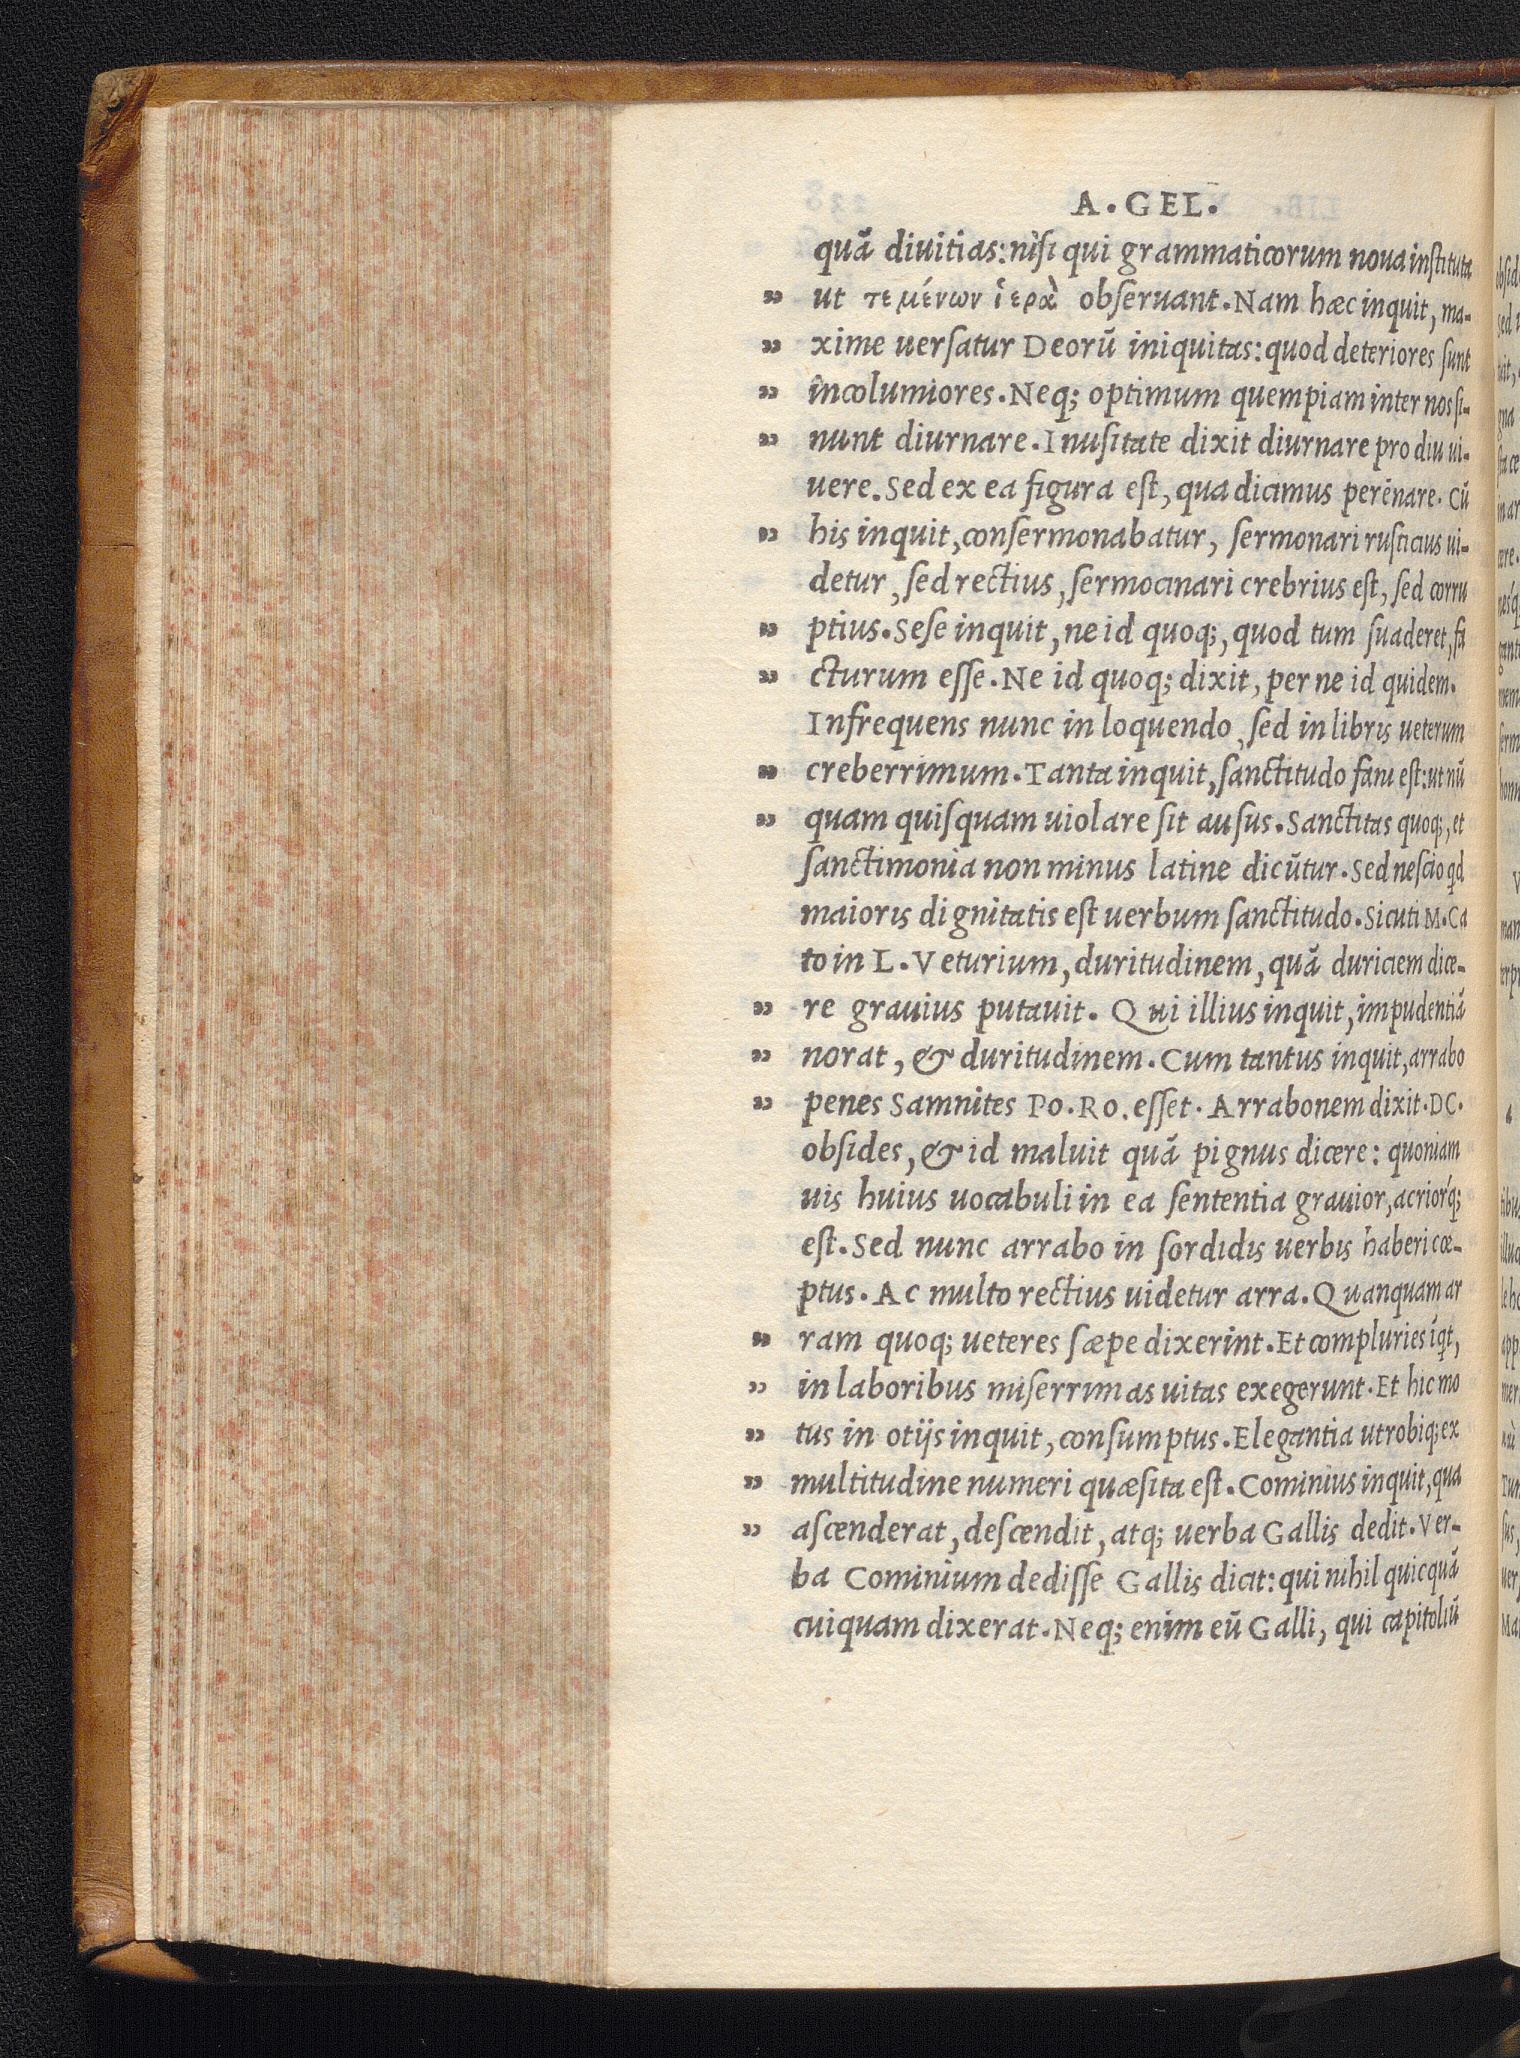 A. GEL.
quã diuitias: nisi qui grammaticorum noua instituta
„ ut τεμένων ἱερὰ obseruant. Nam hæc inquit, ma-
„ xime uersatur Deorũ iniquitas: quod deteriores sunt
„ incolumiores. Neq; optimum quempiam inter nos si-
„ nunt diurnare. Inusitate dixit diurnare pro diu ui-
uere. Sed ex ea figura est, qua dicimus perẽnare. Cũ
„ his inquit, consermonabatur, sermonari rusticius ui-
detur, sed rectius, sermocinari crebrius est, sed corru
„ ptius. Sese inquit, ne id quoq;, quod tum suaderet, fa
„ cturum esse. Ne id quoq; dixit, per ne id quidem.
Infrequens nunc in loquendo, sed in libris ueterum
„ creberrimum. Tanta inquit, sanctitudo fani est: ut nũ
„ quam quisquam uiolare sit ausus. Sanctitas quoq;, et
sanctimonia non minus latine dicũtur. Sed nescio qd
maioris dignitatis est uerbum sanctitudo. Sicuti M. Ca
to in L. Veturium, duritudinem, quã duriciem dice-
„ re grauius putauit. Qui illius inquit, impudentiã
„ norat, & duritudinem. Cum tantus inquit, arrabo
„ penes Samnites Po. Ro. esset. Arrabonem dixit. DC.
obsides, & id maluit quã pignus dicere: quoniam
uis huius uocabuli in ea sententia grauior, acriorq́;
est. Sed nunc arrabo in sordidis uerbis haberi cœ-
ptus. Ac multo rectius uidetur arra. Quanquam ar
„ ram quoq; ueteres sæpe dixerint. Et compluries iq̃t,
„ in laboribus miserrimas uitas exegerunt. Et hic mo
„ tus in otijs inquit, consumptus. Elegantia utrobiq; ex
„ multitudine numeri quæsita est. Cominius inquit, qua
„ ascenderat, descendit, atq; uerba Gallis dedit. Ver-
ba Cominium dedisse Gallis dicit: qui nihil quicquã
cuiquam dixerat. Neq; enim eũ Galli, qui capitoliũ